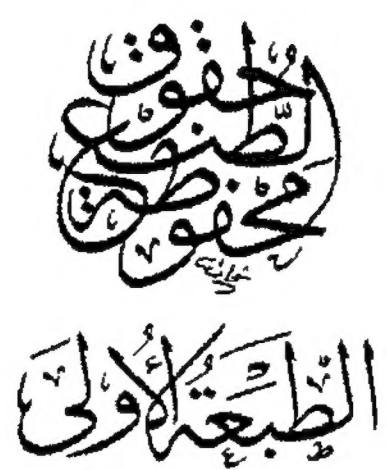 حُقُوق
الطَّبْع
مَحْفُوظَة
الطَّبْعَةُ الأُولَى